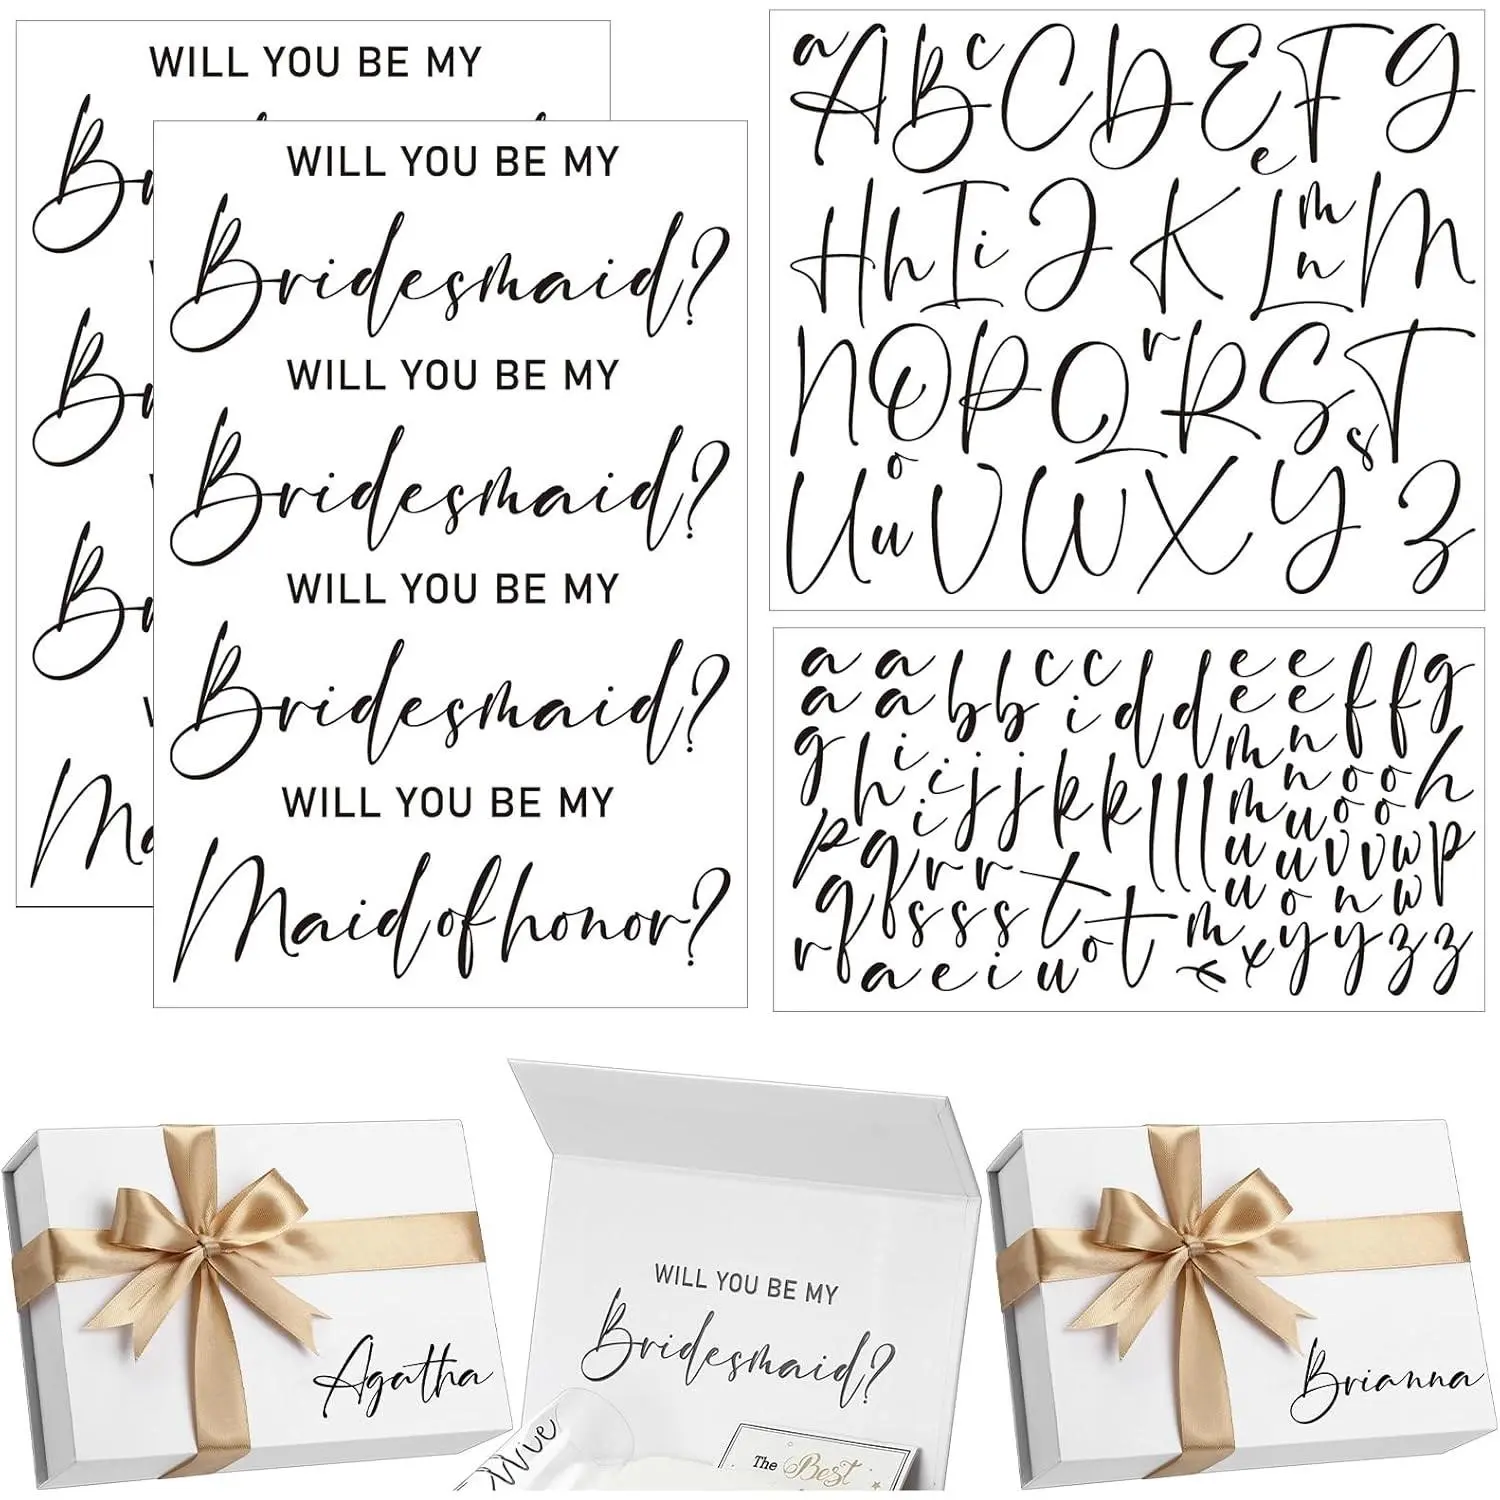 WILL YOU BE MY
WILL YOU BE MY
Bridesmaid?
WILL YOU BE MY
Bridesmaid?
WILL YOU BE MY
Bridesmaid?
WILL YOU BE MY
Maid of honor?
a A B c C D E e F G
H h I i J K L m n M
N O c P Q r R S T
U u o V W X Y s Z
a a b b c c d d e e f f g
a a i e e
g h i i j j k k l l l m n n o o h
i m u o o
p q r r u u v v w p
q s s s t t u o n w
r a e i u o m x x y y z z
Agatha
WILL YOU BE MY
Bridesmaid?
The Best
Brianna